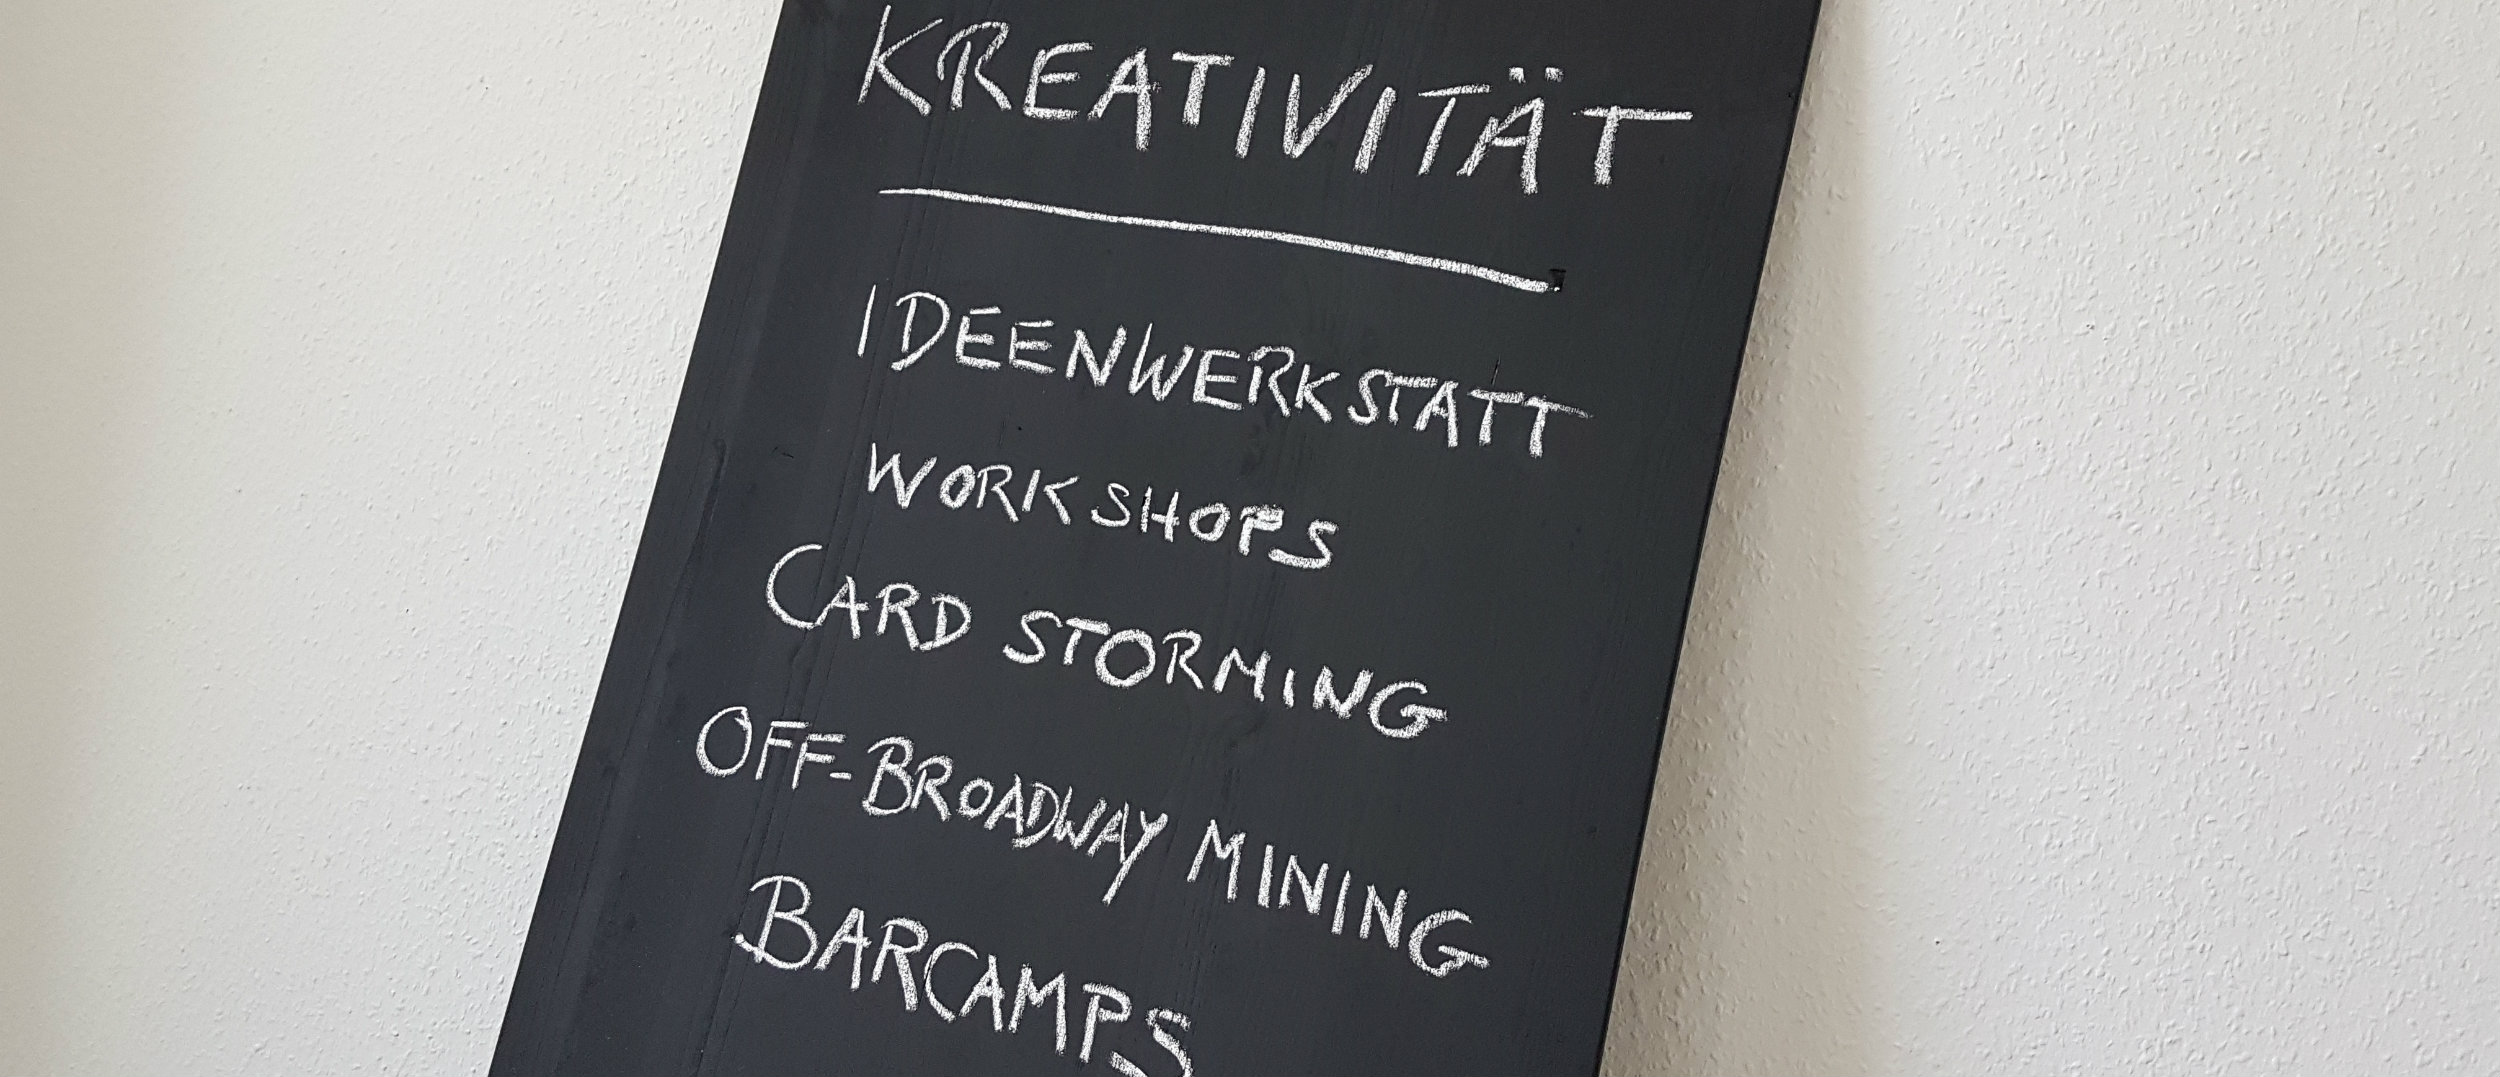 KREATIVITÄT
IDEENWERKSTATT
WORKSHOPS
CARD STORMING
OFF-BROADWAY MINING
BARCAMPS